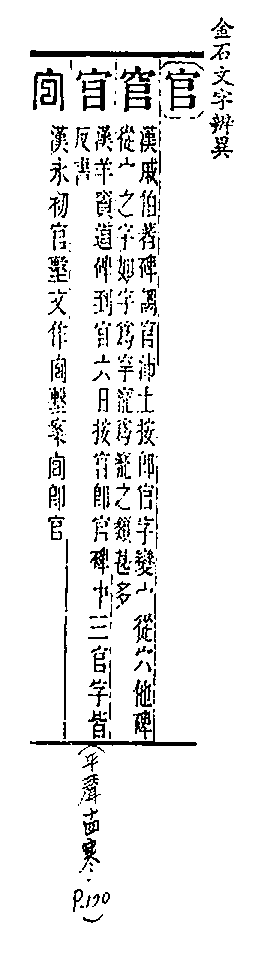 金石文字辨異
官
漢戚伯著碑爲官沛土按即官字變宀從穴他碑
從宀之字如字爲穻寵爲竉之類甚多
官
漢羊竇道碑到官六日按官即官碑中三官字皆
反書
漢永初官墼文作墼案即官
(平聲十四寒.
P.170)